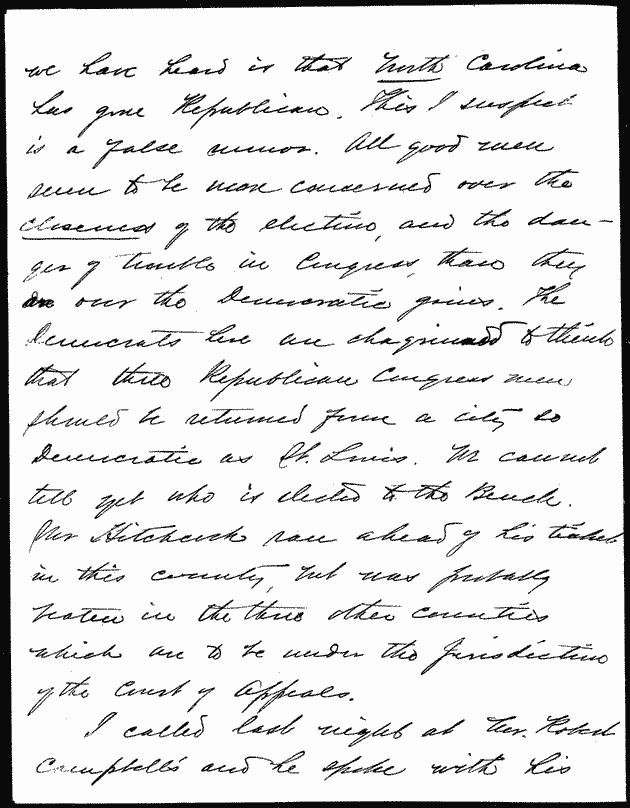 we have heard is that North Carolina
has gone Republican. This I suspect
is a false rumor. All good men
seem to be more concerned over the
closeness of the election, and the dan-
ger of trouble in Congress, than they
are over the Democratic gains. The
Democrats here are chagrined to think
that three Republican Congress men
should be returned from a city so
Democratic as St. Louis. We cannot
tell yet who is elected to the Bench.
Mr Hitchcock ran ahead of his ticket
in this county, but was probably
beaten in the three other counties
which are to be under the jurisdiction
of the Court of Appeals.
I called last night at Mr. Robert
Campbell's and he spoke with his